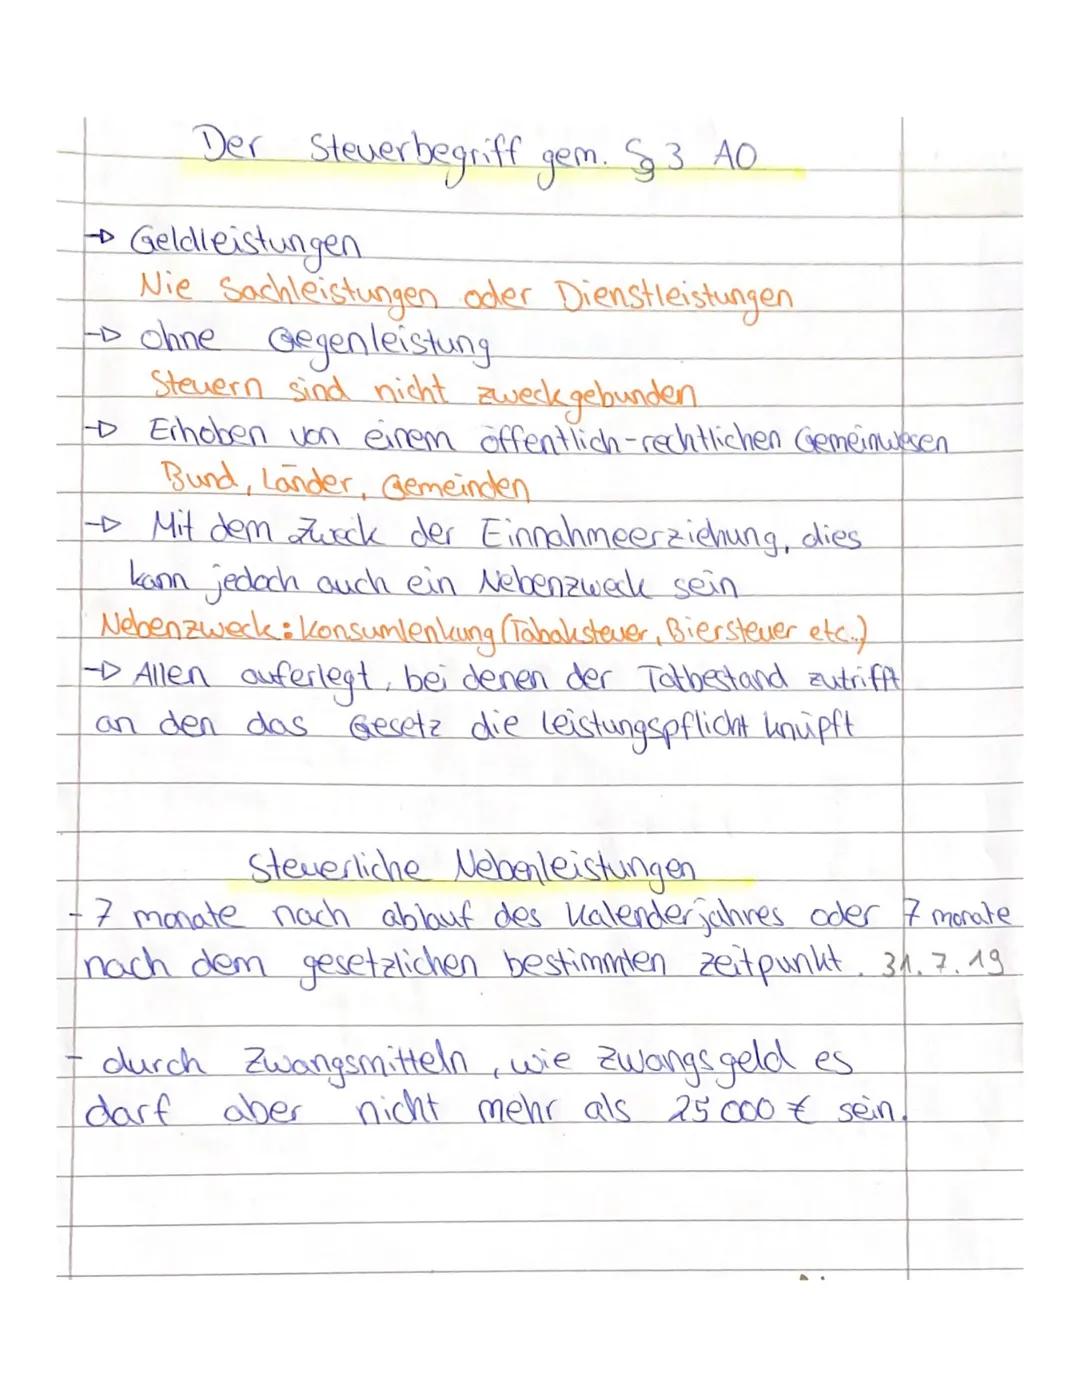 Der Steuerbegriff gem. § 3 AO
→ Geldleistungen
Nie Sachleistungen oder Dienstleistungen
→ ohne Gegenleistung
Steuern sind nicht zweckgebunden
→ Erhoben von einem öffentlich-rechtlichen Gemeinwesen
Bund, Länder, Gemeinden
→ Mit dem Zweck der Einnahmeerziehung, dies
kann jedoch auch ein Nebenzweck sein
Nebenzweck: Konsumlenkung (Tabaksteuer, Biersteuer etc..)
→ Allen auferlegt, bei denen der Tatbestand zutrifft
an den das Gesetz die Leistungspflicht knüpft
Steuerliche Nebenleistungen
- 7 monate nach ablauf des Kalenderjahres oder 7 monate
nach dem gesetzlichen bestimmten zeitpunkt. 31.7.19
- durch Zwangsmitteln, wie Zwangsgeld es
darf aber nicht mehr als 25 000 € sein.